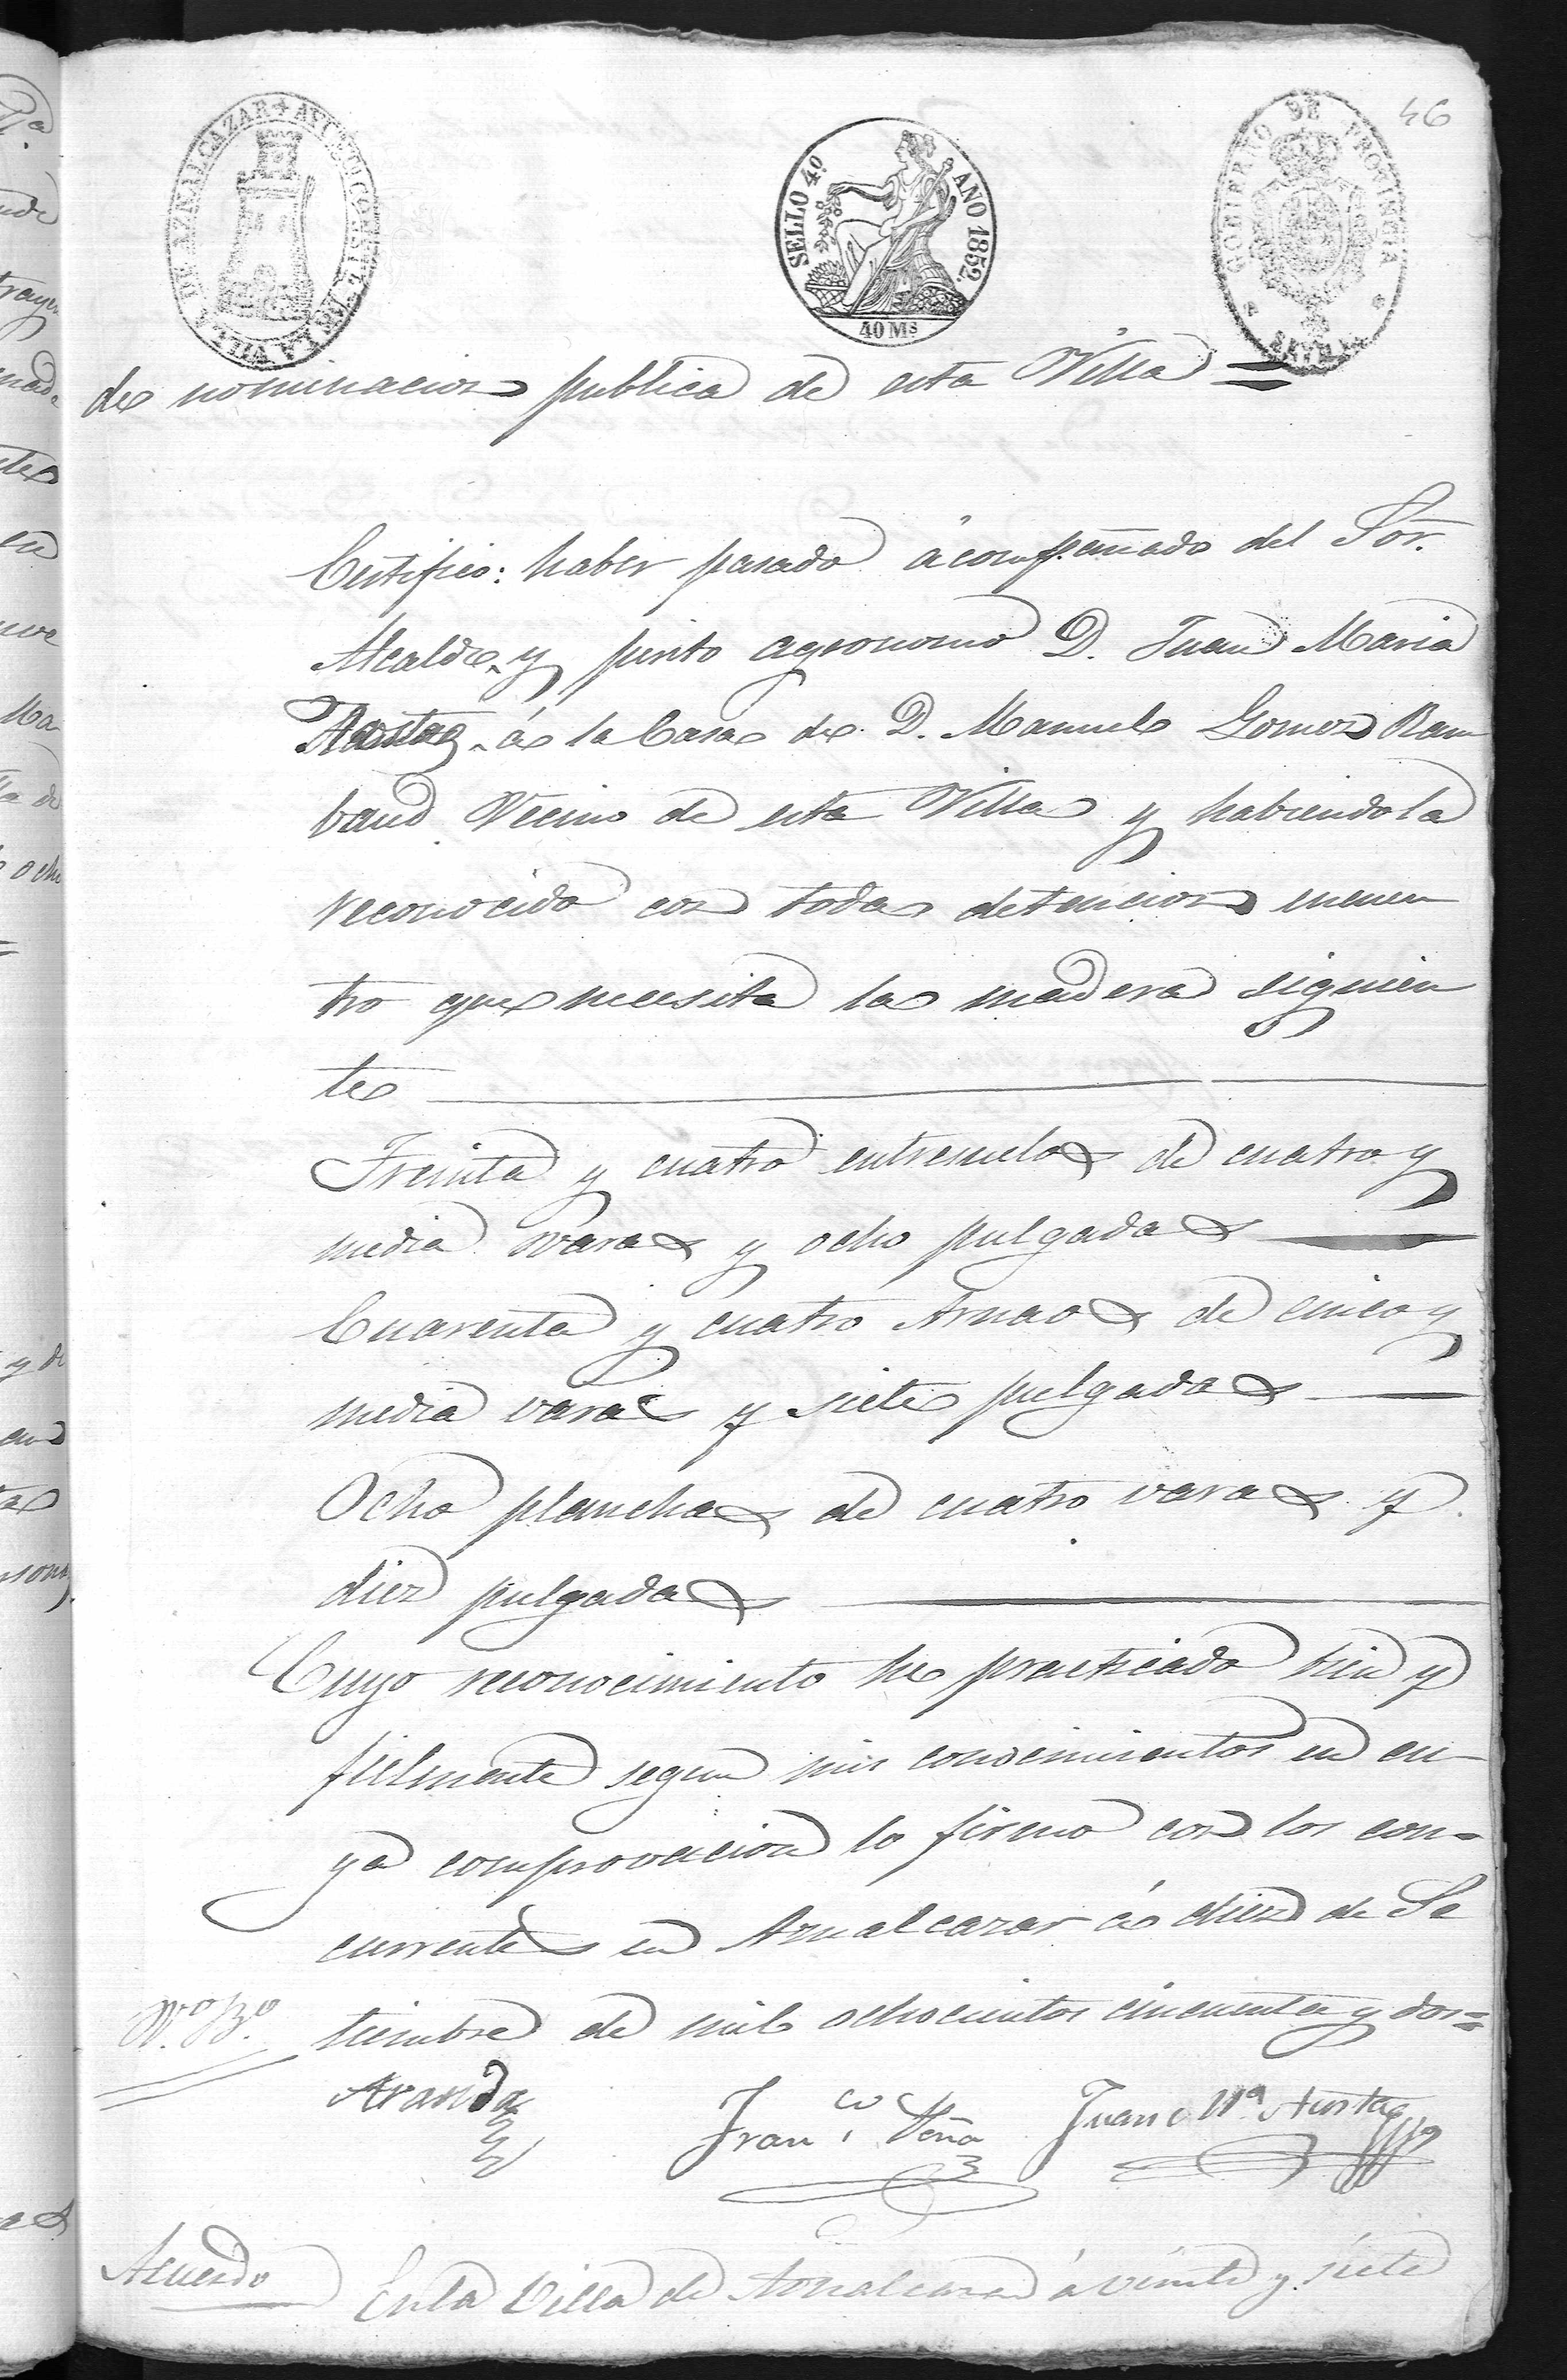 46
AYUNTO CONSTL DE LA VILLA DE AZNALCAZAR
SELLO 4.º AÑO 1852.
40 Ms
GOBIERNO DE PROVINCIA
SEVILLA
de nominacion publica de esta Villa =
Certifico: haber pasado acompañado del Sor.
Alcalde y perito agronomo D. Juan Maria
á la Casa de D. Manuel Gomez Ram
baud Vecino de esta Villa y habiendola
reconocido con toda detencion encuen
tro que necesita la madera siguien
te
Treinta y cuatro entresuelos de cuatro y
media varas y ocho pulgadas
Cuarenta y cuatro de cinco y
media varas y siete pulgadas
Ocho planchas de cuatro varas y
diez pulgadas
Cuyo reconocimiento he practicado bien y
fielmente segun mis conocimientos en cu-
ya comprovacion lo firmo con los con=
currentes en Aznalcazar á diez de Se
tiembre de mil ochocientos cincuenta y dos=
Vº Bº
Aranda
Franco Peña
Juan Mª
Acuerdo
En la Villa de Aznalcazar á veinte y siete